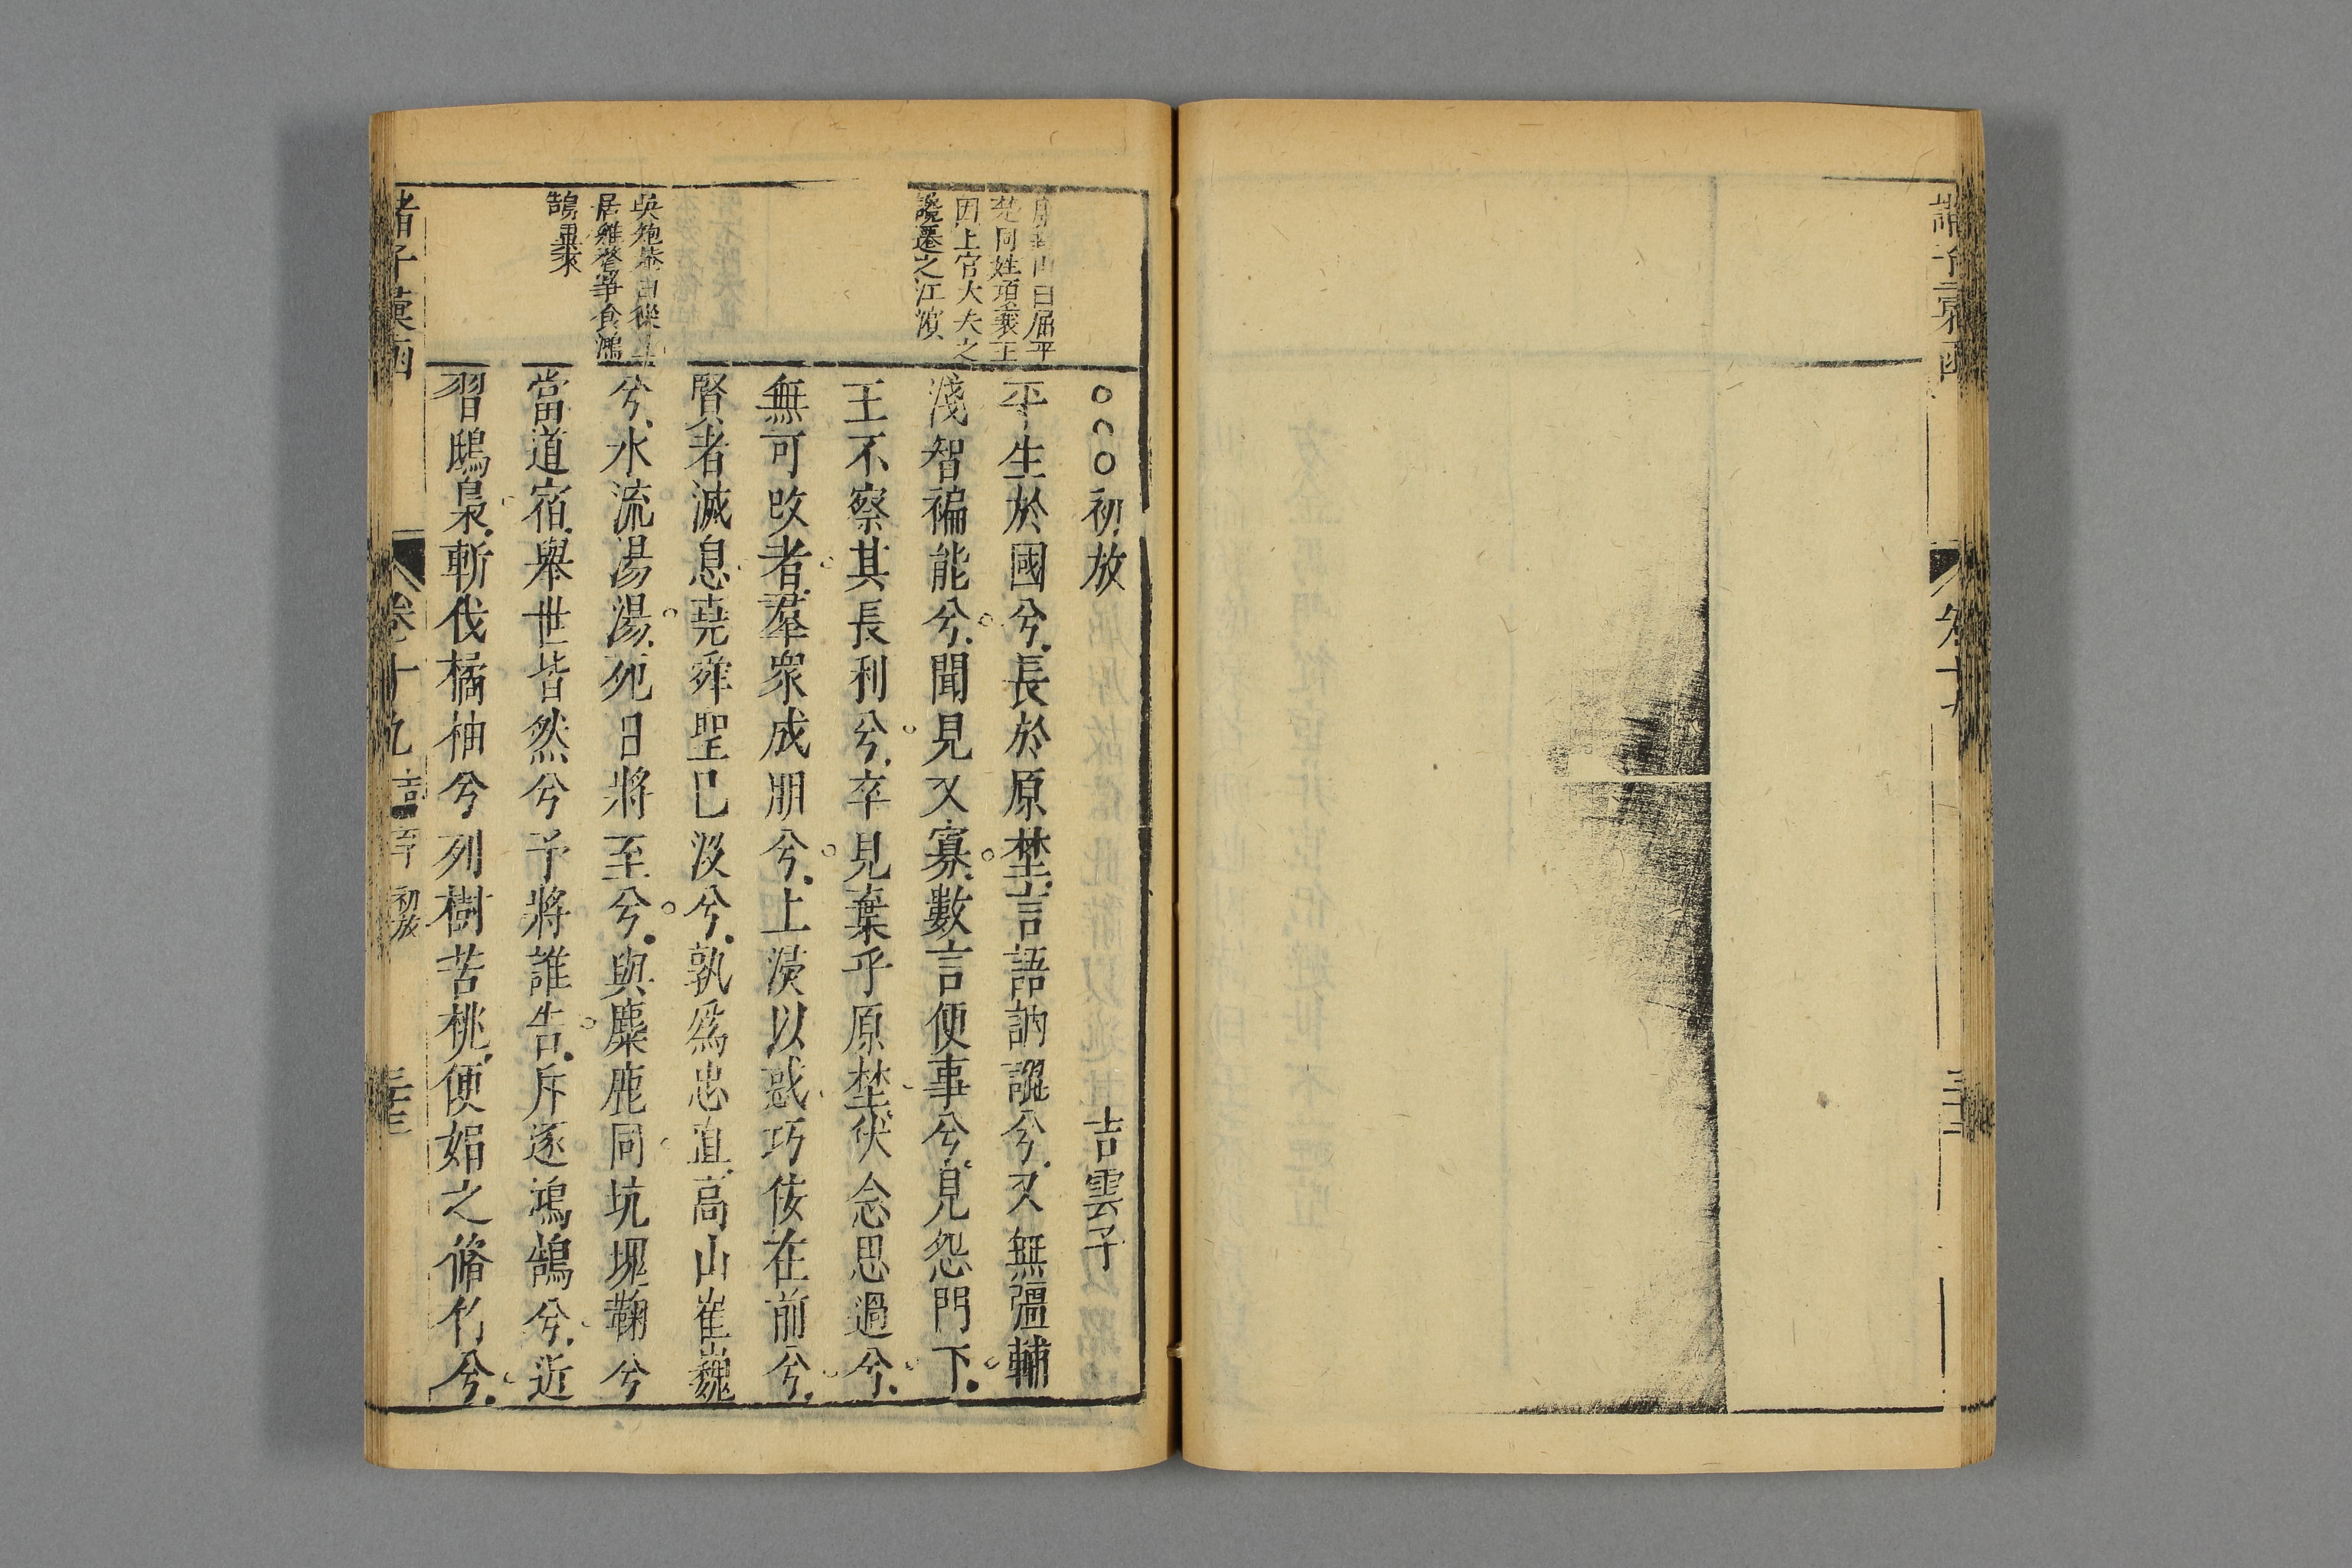 初放
吉雲子
平生於國兮長於原埜言語訥譅兮又無彊輔
淺智褊能兮聞見又寡數言便事兮見怨門下
王不察其長利兮卒見棄乎原埜伏念思過兮
無可改者羣衆成朋兮上浸以惑巧佞在前兮
賢者滅息堯舜聖已没兮孰爲忠直高山崔巍
兮水流湯湯死日將至兮與麋鹿同坑塊鞠兮
當道宿舉世皆然兮予將誰告斥逐鴻鵠兮近
習鴟梟斬伐橘柚兮列樹苦桃便娟之脩竹兮
曰屈平
楚同姓項襄王
因上官大夫之
讒遷之江濱
吳匏菴曰
居雞鶩爭食鴻
鵠
諸子彙函
卷十九
吉雲子
初放
三十三